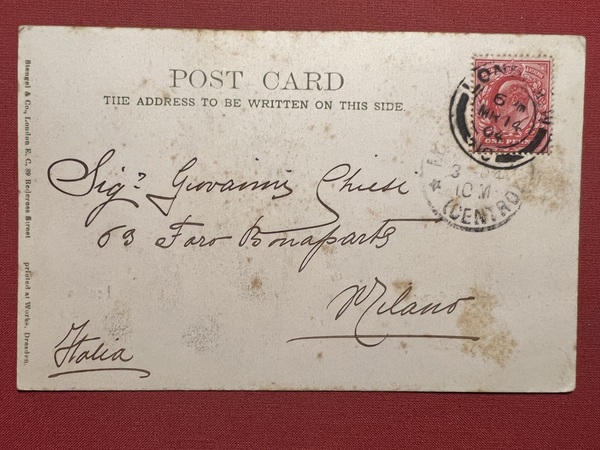 POST CARD
THE ADDRESS TO BE WRITTEN ON THIS SIDE.
Sigr Giovanni Chiesi
63 Foro Bonaparte
Milano
Italia
Stengel & Co., London E. C. 39 Redcross Street printed at Works, Dresden.
LON
6 PM
MR 14
04
ONE PENNY
10 M
(CENTRO